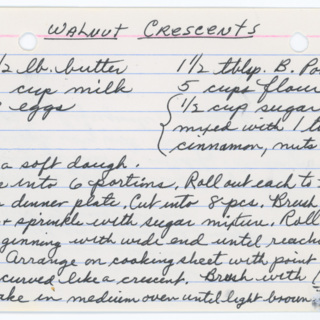 WALNUT CRESCENTS
/2 lb. butter 1 1/2 tblsp. B. Po
cup milk 5 cups flour
eggs 1/2 cup sugar
mixed with 1 t
cinnamon, nuts
a soft dough.
into 6 portions. Roll out each to
dinner plate. Cut into 8 pcs. Brush
+ sprinkle with sugar mixture. Roll
ginning with wide end until reachi
Arrange on cooking sheet with point
curved like a crescent. Brush with
ake in medium oven until light brown